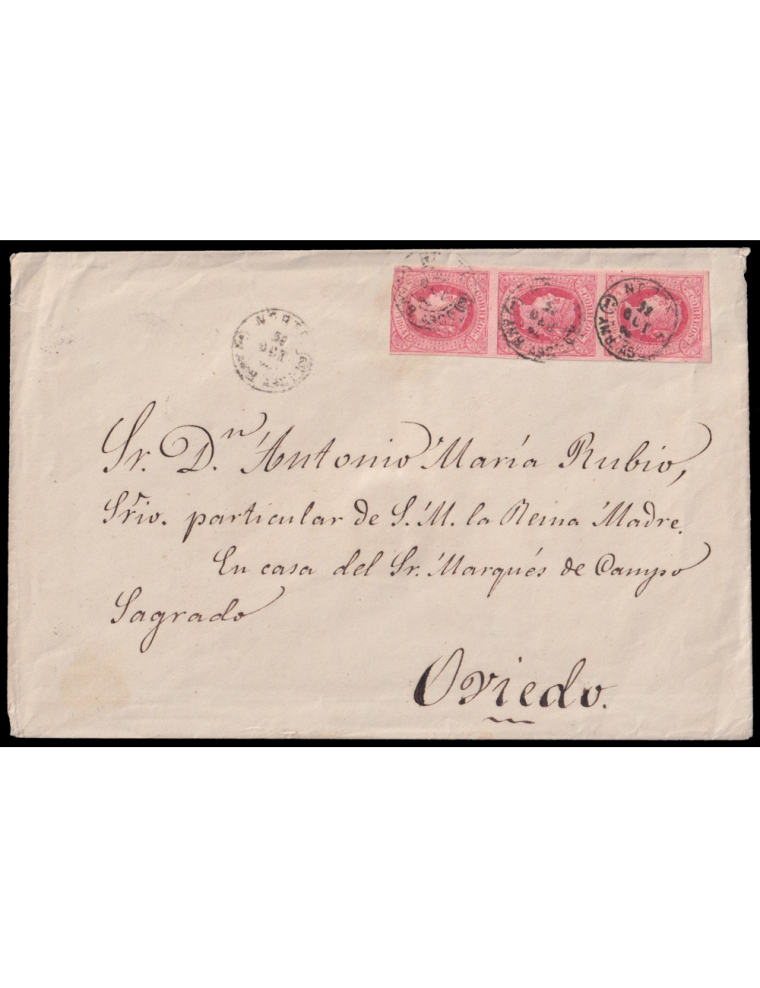 NORTE
Sr. D.ⁿ Antonio María Rubio,
Srio. particular de S. M. la Reina Madre.
En casa del Sr. Marqués de Campo
Sagrado
Oviedo.